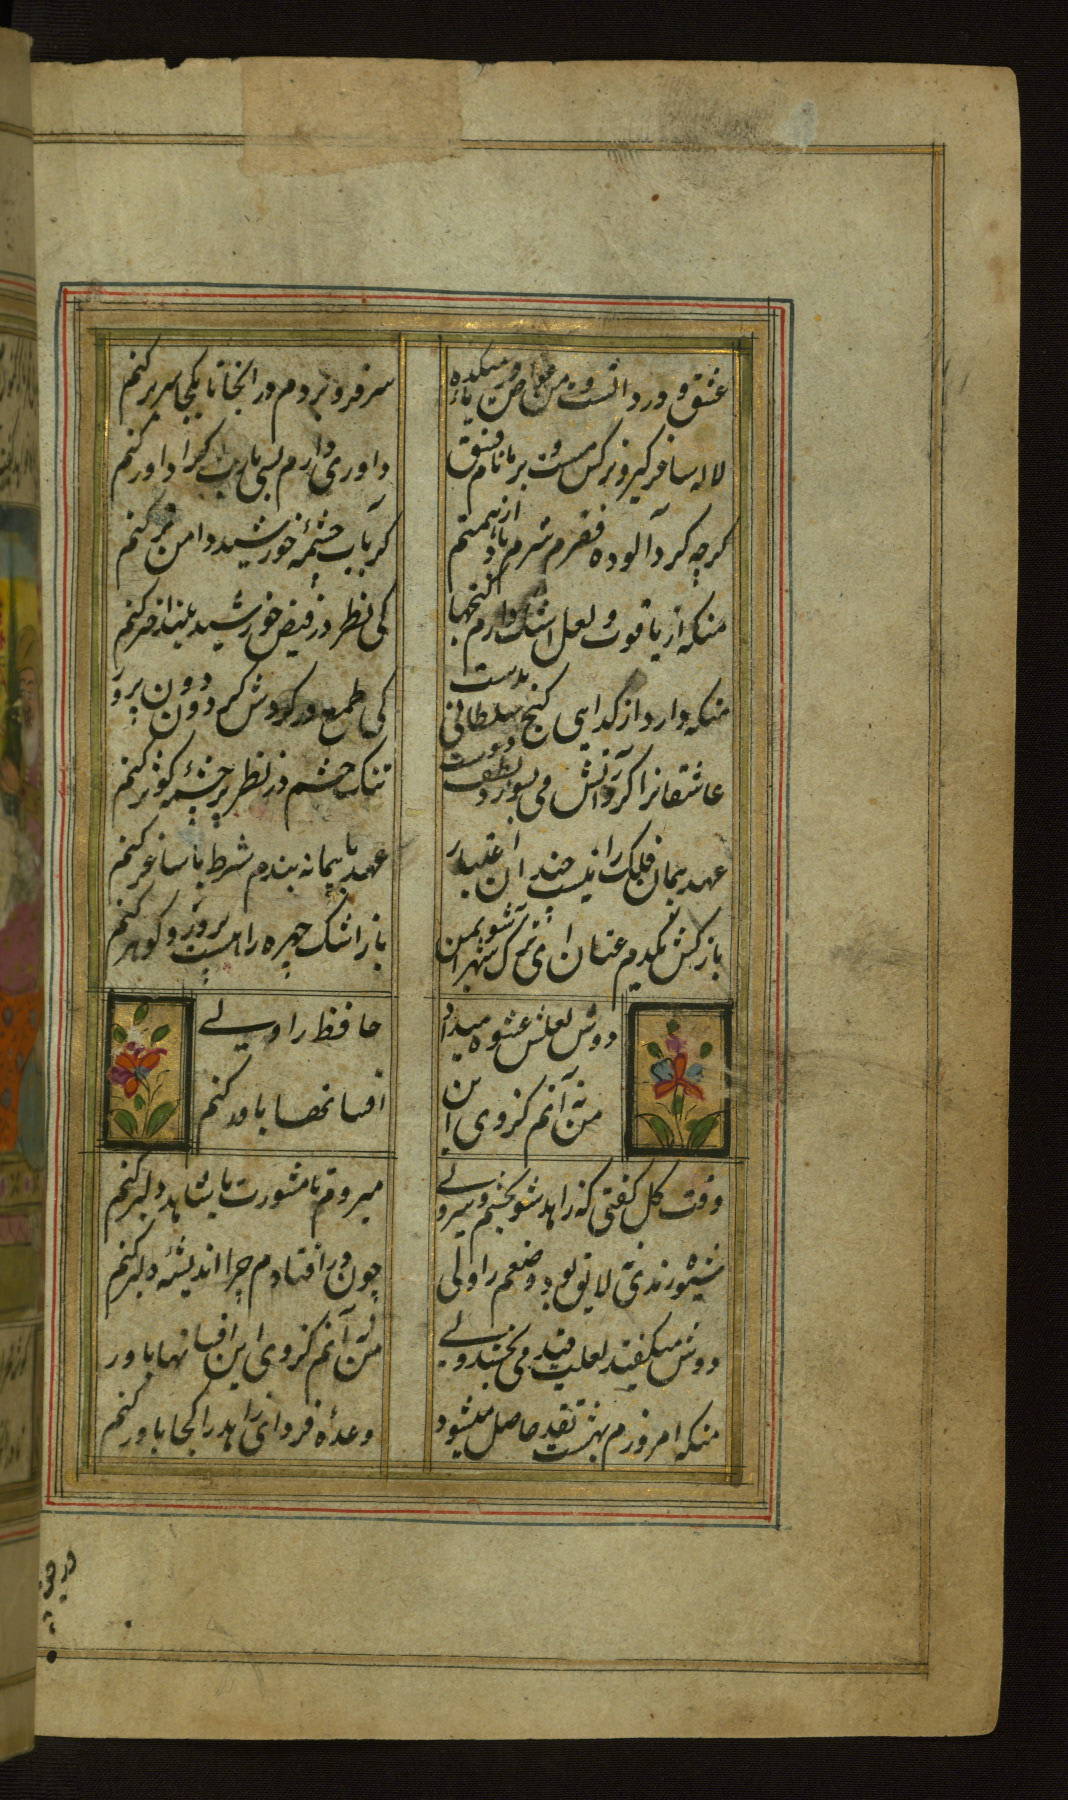 عشق دردانست و من غواص و دریا میکده
سر فرو بردم در آنجا تا کجا سر بر کنم
لاله ساغر گیر و نرگس مست و بر ما نام فسق
داوری دارم بسی یارب کرا داور کنم
گرچه گرد آلوده فقرم شرم باد از همتم
گر بآب چشمهٔ خورشید دامن تر کنم
منکه از یاقوت و لعل اشک دارم گنجها
کی نظر در فیض خورشید بلند اختر کنم
منکه دارد از گدایی گنج سلطانی بدست
کی طمع در گردش گردون دون پرور کنم
عاشقانرا گر در آتش می بسوزد لطف دوست
تنک چشمم در نظر بر چشمهٔ کوثر کنم
عهد پیمان فلک را نیست چندان اعتبار
عهد با پیمانه بندم شرط با ساغر کنم
باز کش یکدم عنان ای ترک شهر آشوب من
باز اشک چهره راهت پر زر و گوهر کنم
دوش لعلش عشوه میداد
حافظ را ولی
من نه آنم کز وی این
افسانها باور کنم
وقت گل گفتی که زاهد شو بچشم و سر ولی
میروم تا مشورت با شاهد دلبر کنم
شیوه رندی لایق بود وضعم را ولی
چون در افتادم چرا اندیشهٔ دیگر کنم
دوش میگفتند لعلت قند می بخشد ولی
من نه آنم کز وی این افسانها باور
منکه امروزم بهشت نقد حاصل میشود
وعدهٔ فردای زاهد را کجا باور کنم